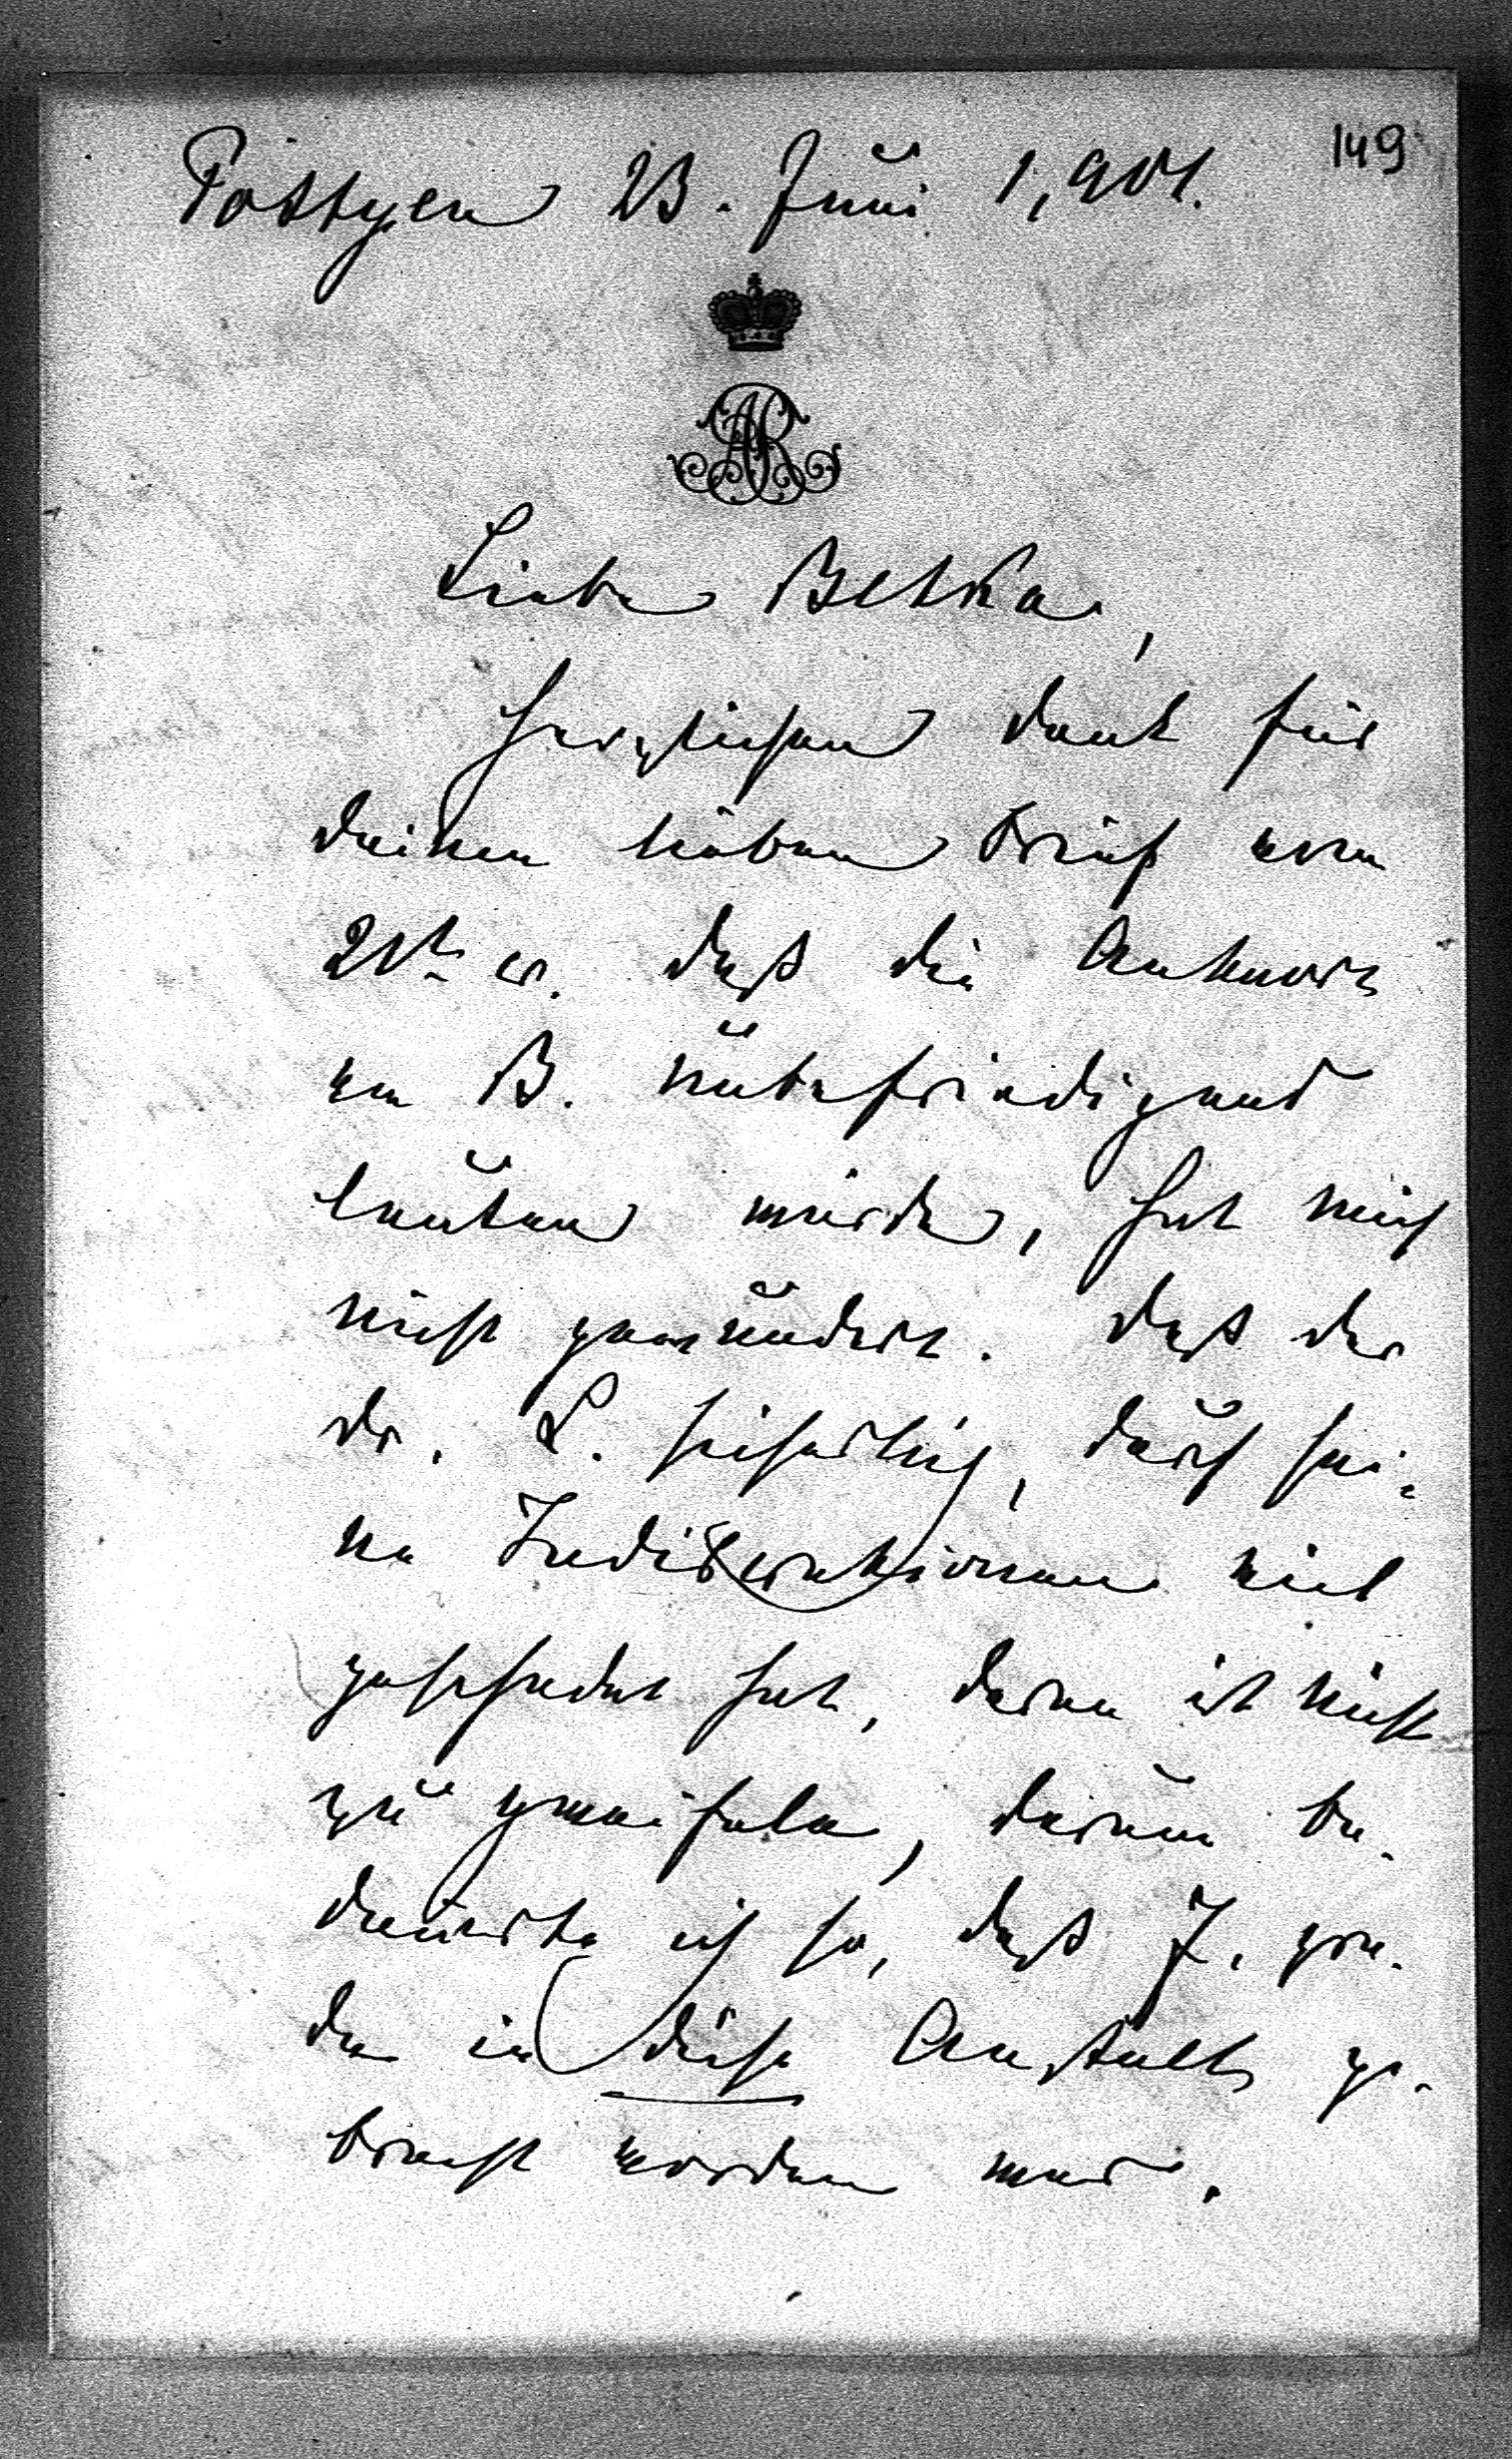 149
Pöstyen 23. Juni 1,901.
AR
Liebe Betka,
herzlichen Dank für
deinen lieben Brief vom
21t. er. daß die Antwort
von B. unbefriedigend
lauten würde, hat mich
nicht gewundert. daß der
Dr. L. sicherlich, durch sei-
ne Indiskretionen viel
geschadet hat, daran ist nicht
zu zweifeln, darum be-
dauerte ich so, daß J. gra-
de in diese Anstalt ge-
bracht worden war.